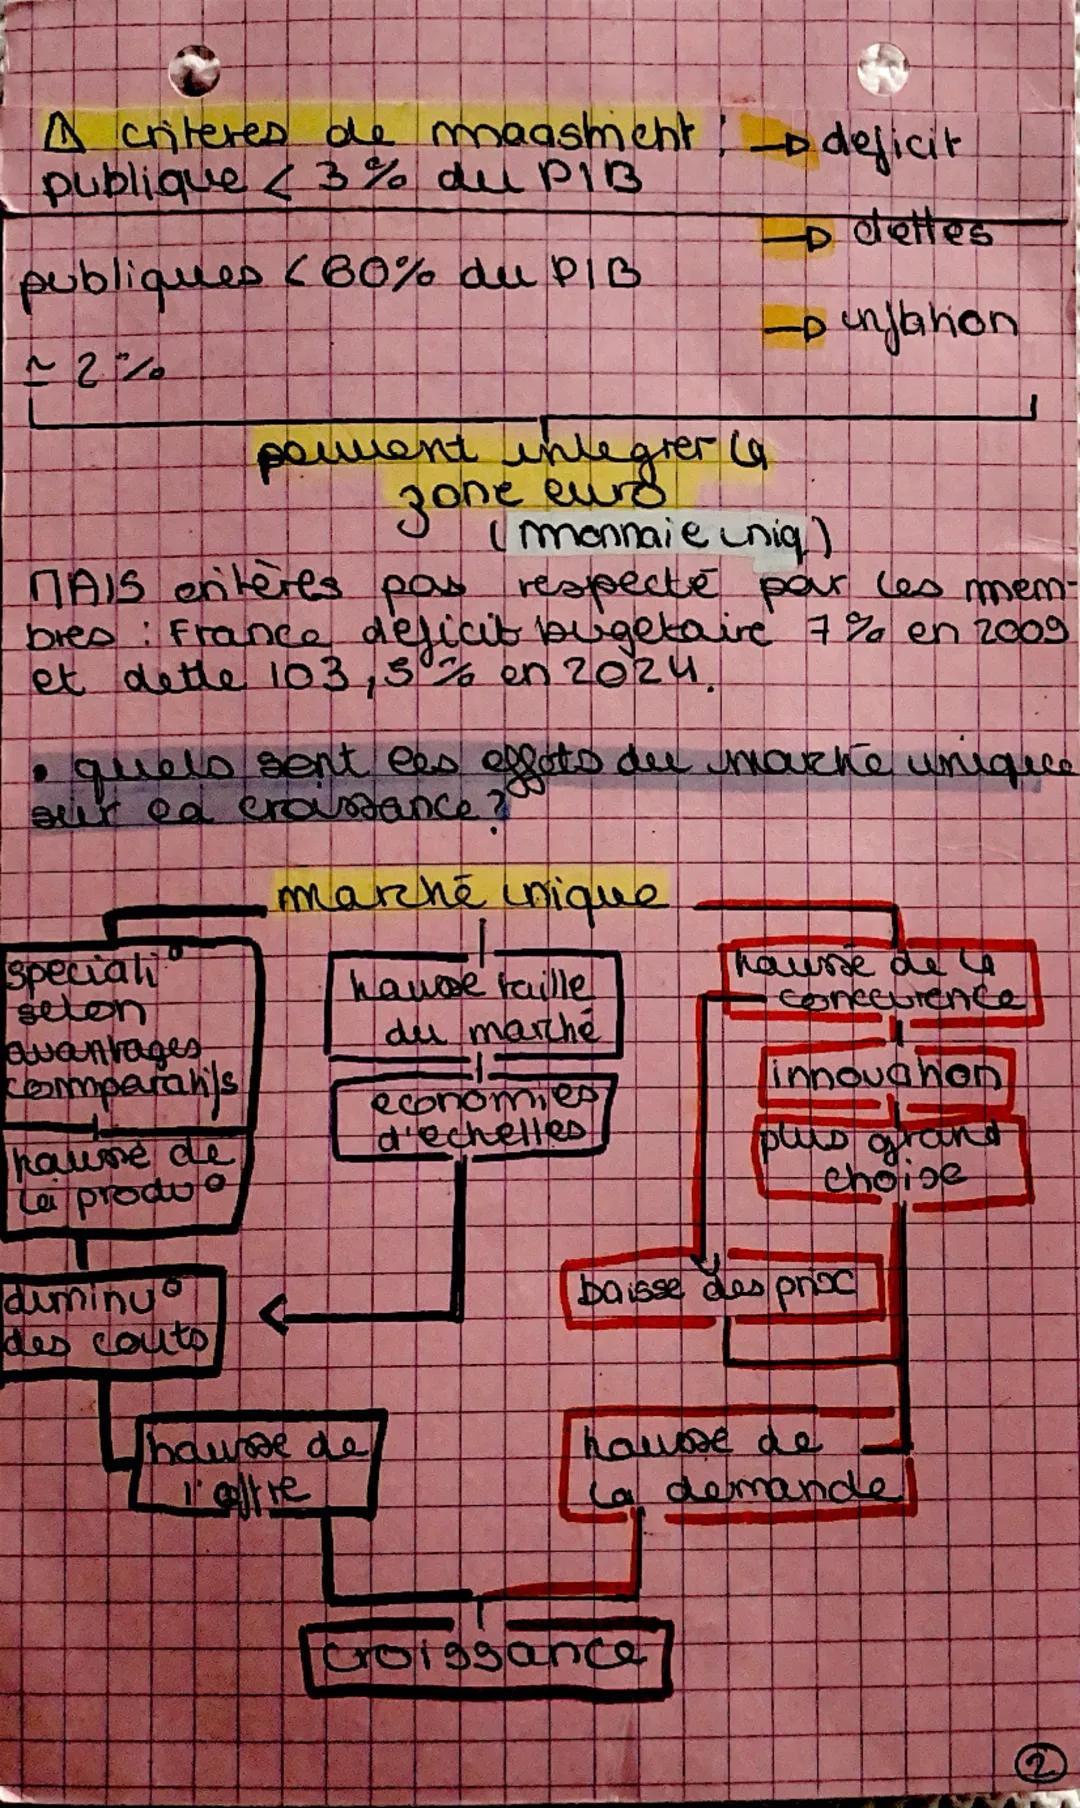 ⚠ criteres de maastricht : → deficit
publique < 3% du PIB
→ dettes
publiques < 60% du PIB
→ inflation
≃ 2%
peuvent integrer la
zone euro
(monnaie uniq)
MAIS critères pas respecté par les mem-
bres : France deficit bugetaire 7% en 2009
et dette 103,5% en 2024.
• quels sont les effets du marché unique
sur la croissance ?
marché unique
speciali°
selon
avantages
comparatifs
hausse de
la produ°
diminu°
des couts
hausse taille
du marché
economies
d'echelles
hausse de la
concurence
innovation
plus grand
choise
baisse des prix
hausse de
l'offre
hausse de
la demande
croissance
2